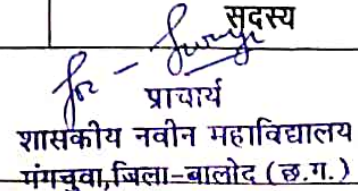 सदस्य
for -
प्राचार्य
शासकीय नवीन महाविद्यालय
मंगचुवा, जिला-बालोद (छ.ग.)